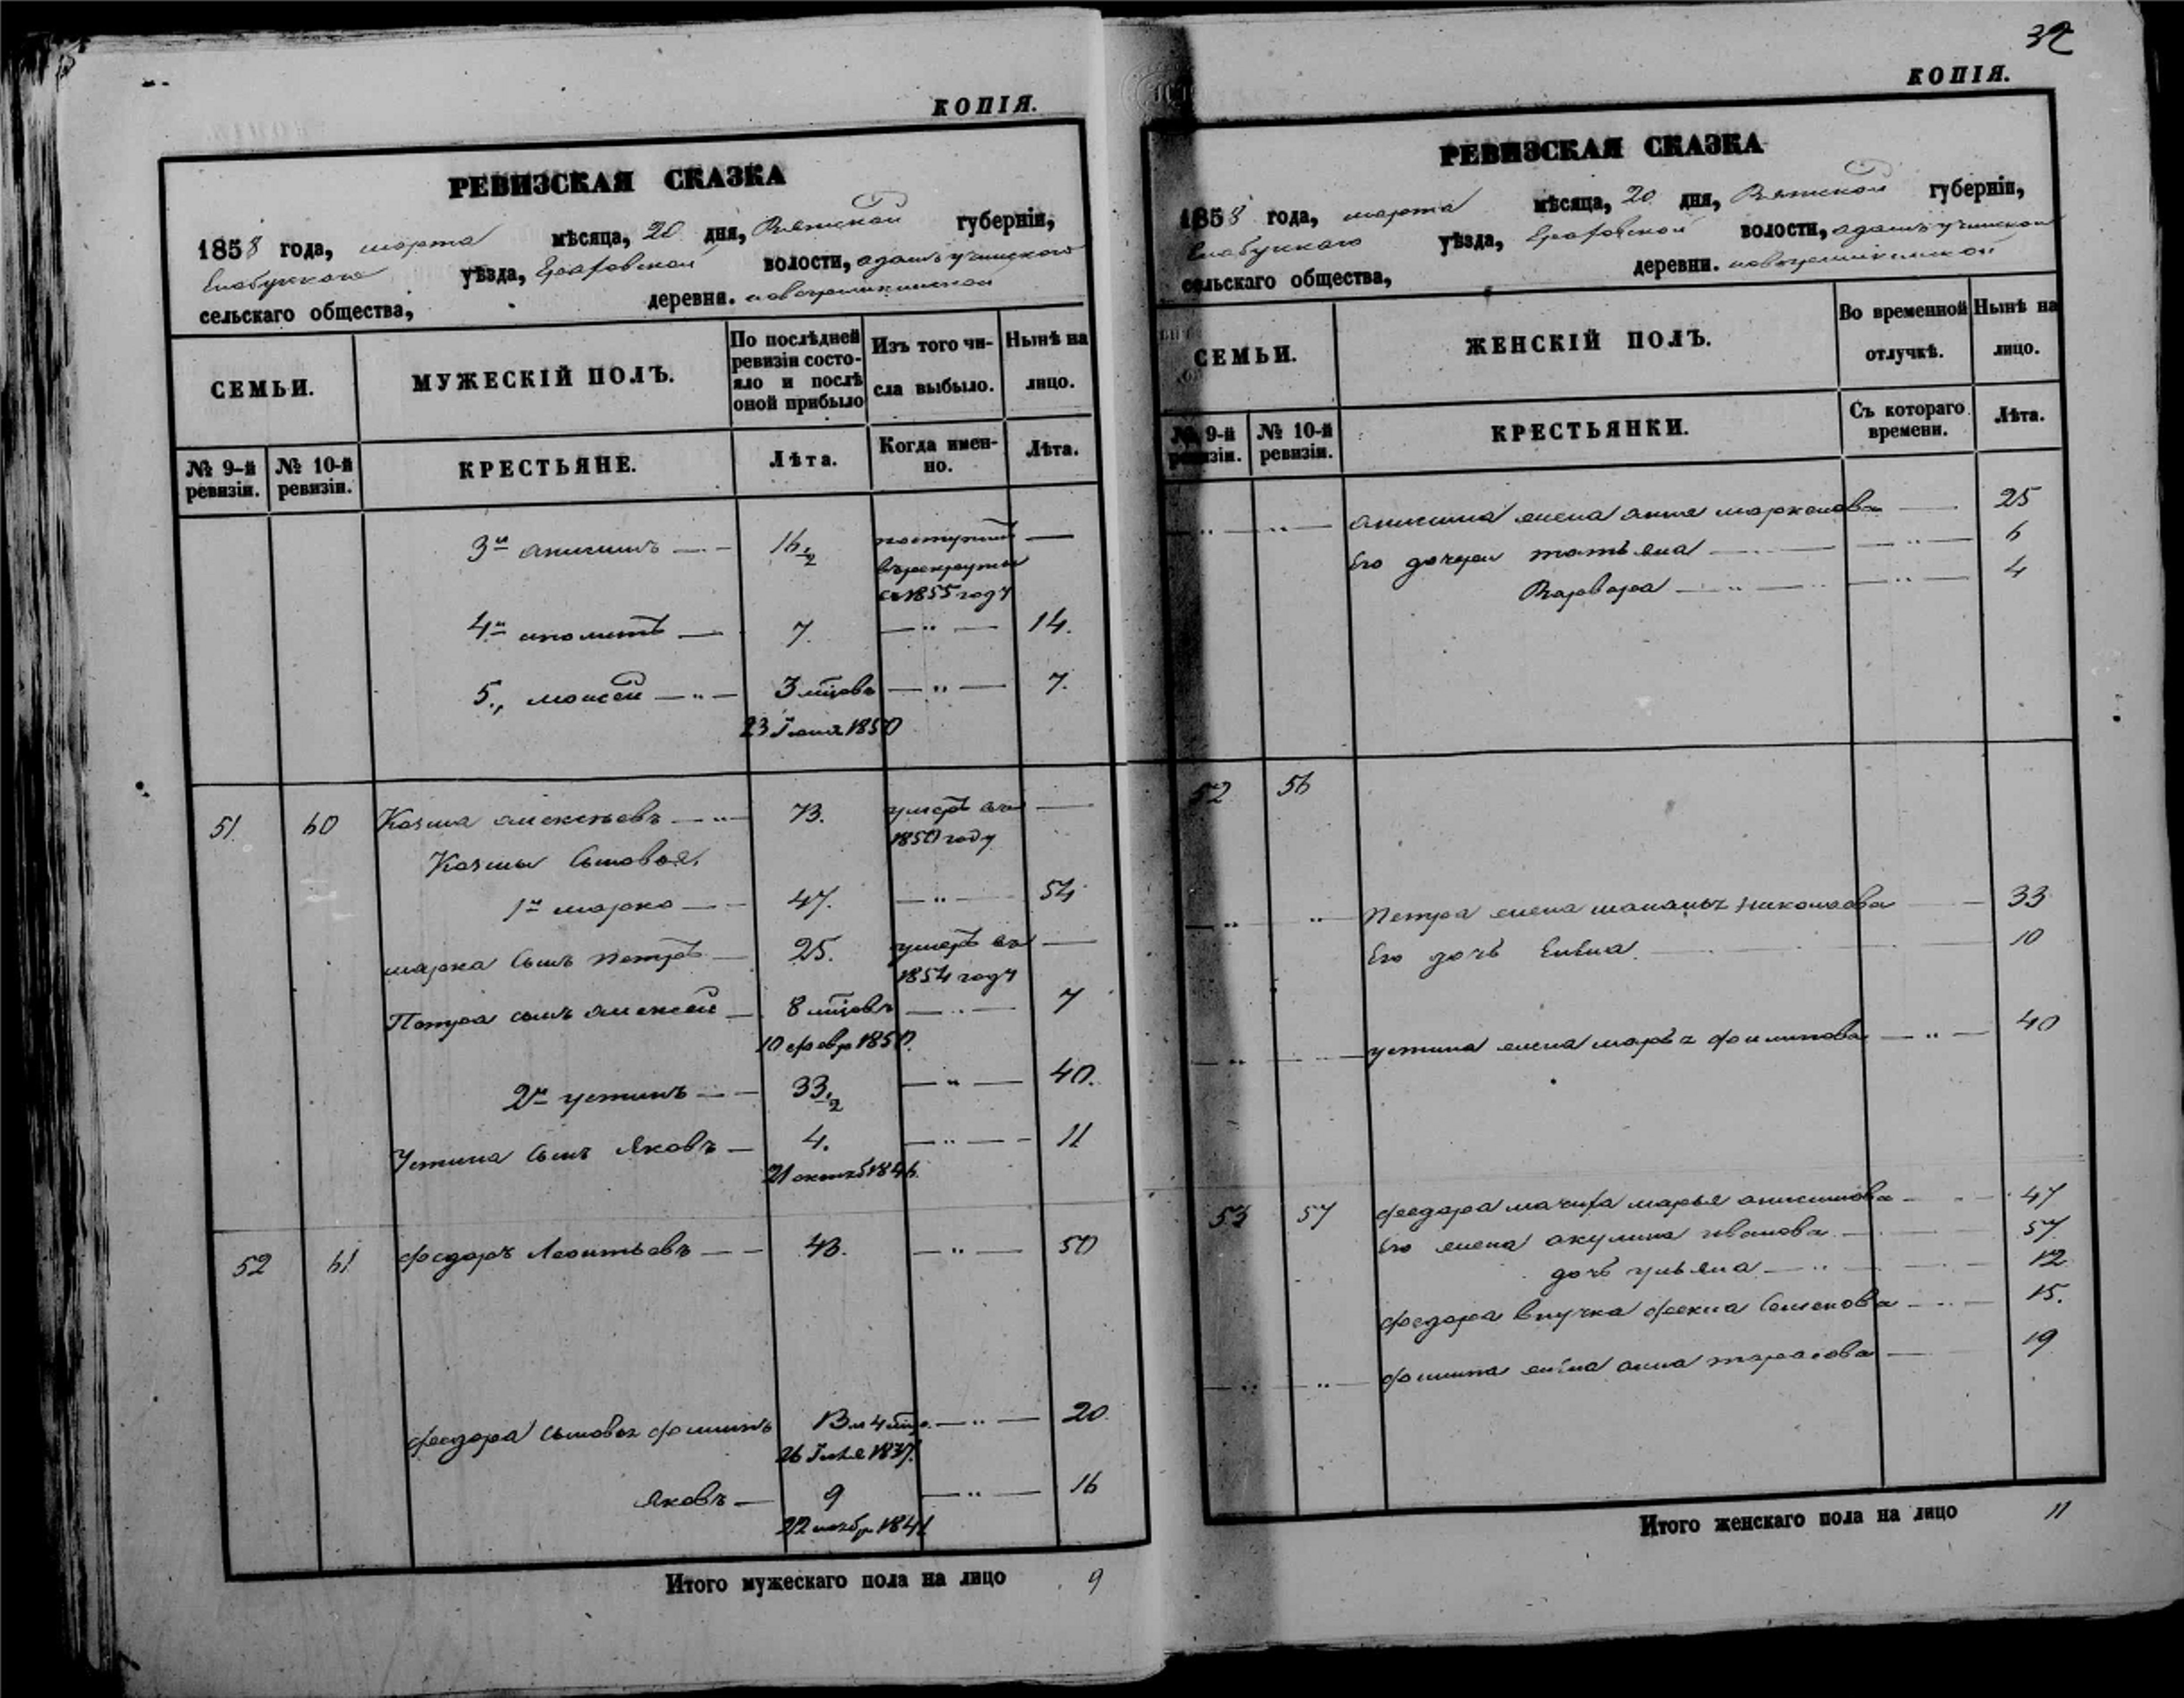 КОПІЯ.
РЕВИЗСКАЯ СКАЗКА
1858 года, марта мѣсяца, 20 дня, Вятской губерніи,
Елабужскаго уѣзда, Граховской волости,
сельскаго общества, деревни.
СЕМЬИ.
МУЖЕСКІЙ ПОЛЪ.
По послѣдней ревизіи состояло и послѣ оной прибыло
Изъ того числа выбыло.
Нынѣ на лицо.
№ 9-й ревизіи.
№ 10-й ревизіи.
КРЕСТЬЯНЕ.
Лѣта.
Когда именно.
Лѣта.
3й анисимъ 16 1/2 поступилъ
въ рекруты
въ 1855 году
4й иполитъ 7. 14.
5., моисей 3 мѣсяцовъ 7.
23 Іюня 1850
51. 60 Козма алексѣевъ 73. умеръ въ
1850 году
Козмы сыновья,
1й марко 47. 54
марка сынъ петръ 25. умеръ въ
1854 году
Петра сынъ алексей 8 мѣсяцовъ 7
10 февр 1850.
2й устинъ 33 1/2 40.
Устина сынъ Яковъ 4. 11
21 октяб 1846
52 61 федоръ Леонтьевъ 43. 50
федора сыновья фомина 13 л 4 20.
26 1837.
Яковъ 9 16
22 ноябр 1841
Итого мужескаго пола на лицо 9
32
КОПІЯ.
РЕВИЗСКАЯ СКАЗКА
1858 года, марта мѣсяца, 20 дня, Вятской губерніи,
Елабужскаго уѣзда, Граховской волости,
сельскаго общества, деревни.
СЕМЬИ.
ЖЕНСКІЙ ПОЛЪ.
Во временной отлучкѣ.
Нынѣ на лицо.
№ 9-й ревизіи.
№ 10-й ревизіи.
КРЕСТЬЯНКИ.
Съ котораго времени.
Лѣта.
анисима жена анна маркелова 25
Его дочери татьяна 6
Варвара 4
52 56
Петра жена николаева 33
Его дочь Елена 10
устина жена марья филипова 40
53 57 федора мачиха марья анисимова 47
Его жена акулина иванова 57.
дочь ульяна 12
федора внучка фекла семенова 15.
фомина жена анна тарасова 19
Итого женскаго пола на лицо 11